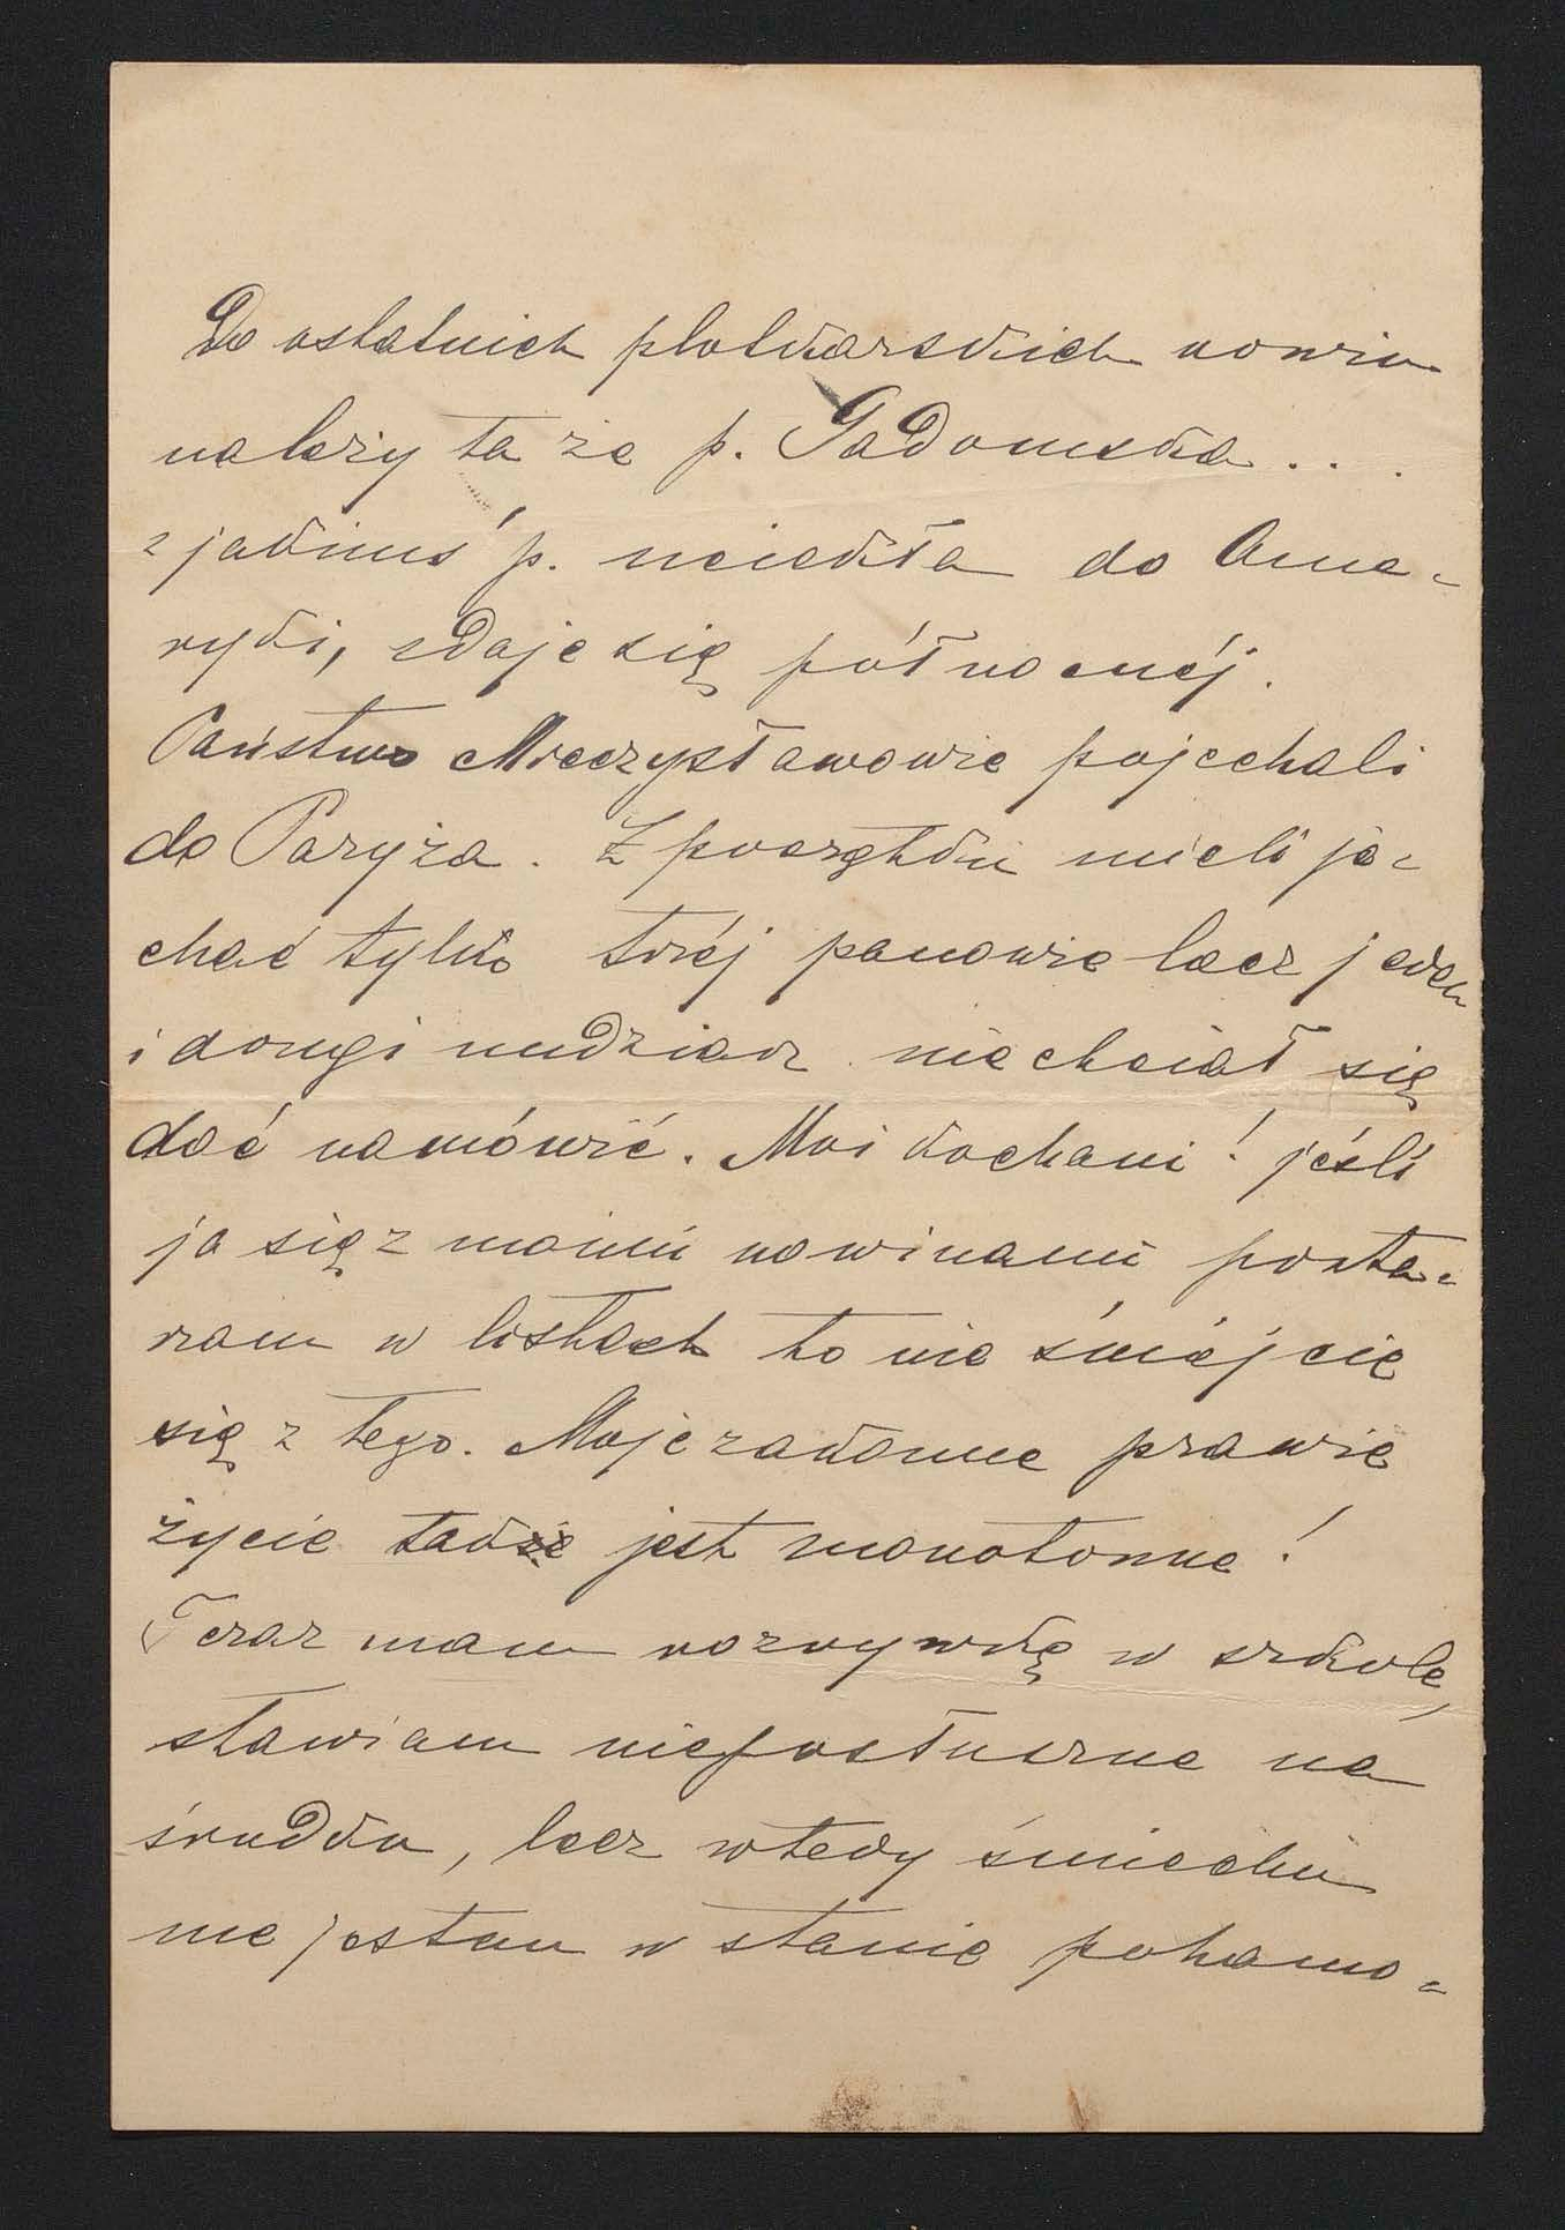 Do ostatnich plotkarskich nowin
należy ta że p. Gadomska...
z jakimś p. uciekła do Ame-
ryki, zdaje się północnéj.
Państwo Mieczysławowie pojechali
do Paryża. Z początku mieli je-
chać tylko trzéj panowie lecz jeden
i drugi nudziarz niechciał się
dać namówić. Moi kochani! jeśli
ja się z moimi nowinami powta-
rzam w listach to nie śmiéjcie
się z tego. Moje zakonne prawie
życie także jest monotonne!
Teraz mam rozrywkę w szkole,
stawiam nieposłuszne na
środku, lecz wtedy śmiechu
nie jestem w stanie pohamo-